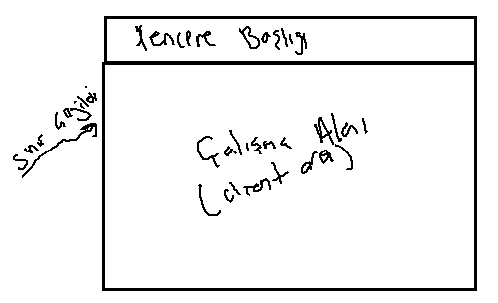 Pencere Başlığı
Sınır Çizgileri
Çalışma Alanı
(client area)